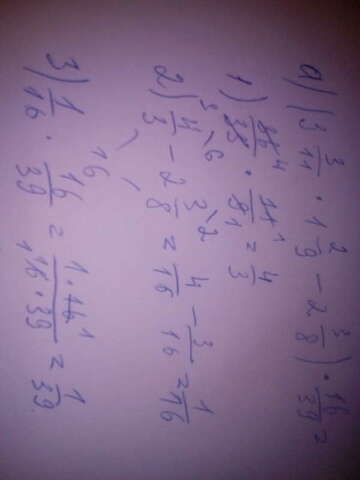 а) (3 3/11 · 1 2/9 - 2 3/8) · 16/39 =
1) 36 4/33 3 · 11 1/8 1 = 4/3
2) 4/3 - 2 3/8 = 4/16 - 3/16 = 1/16
16
3) 1/16 · 16/39 = 1·16 1/1 16·39 = 1/39